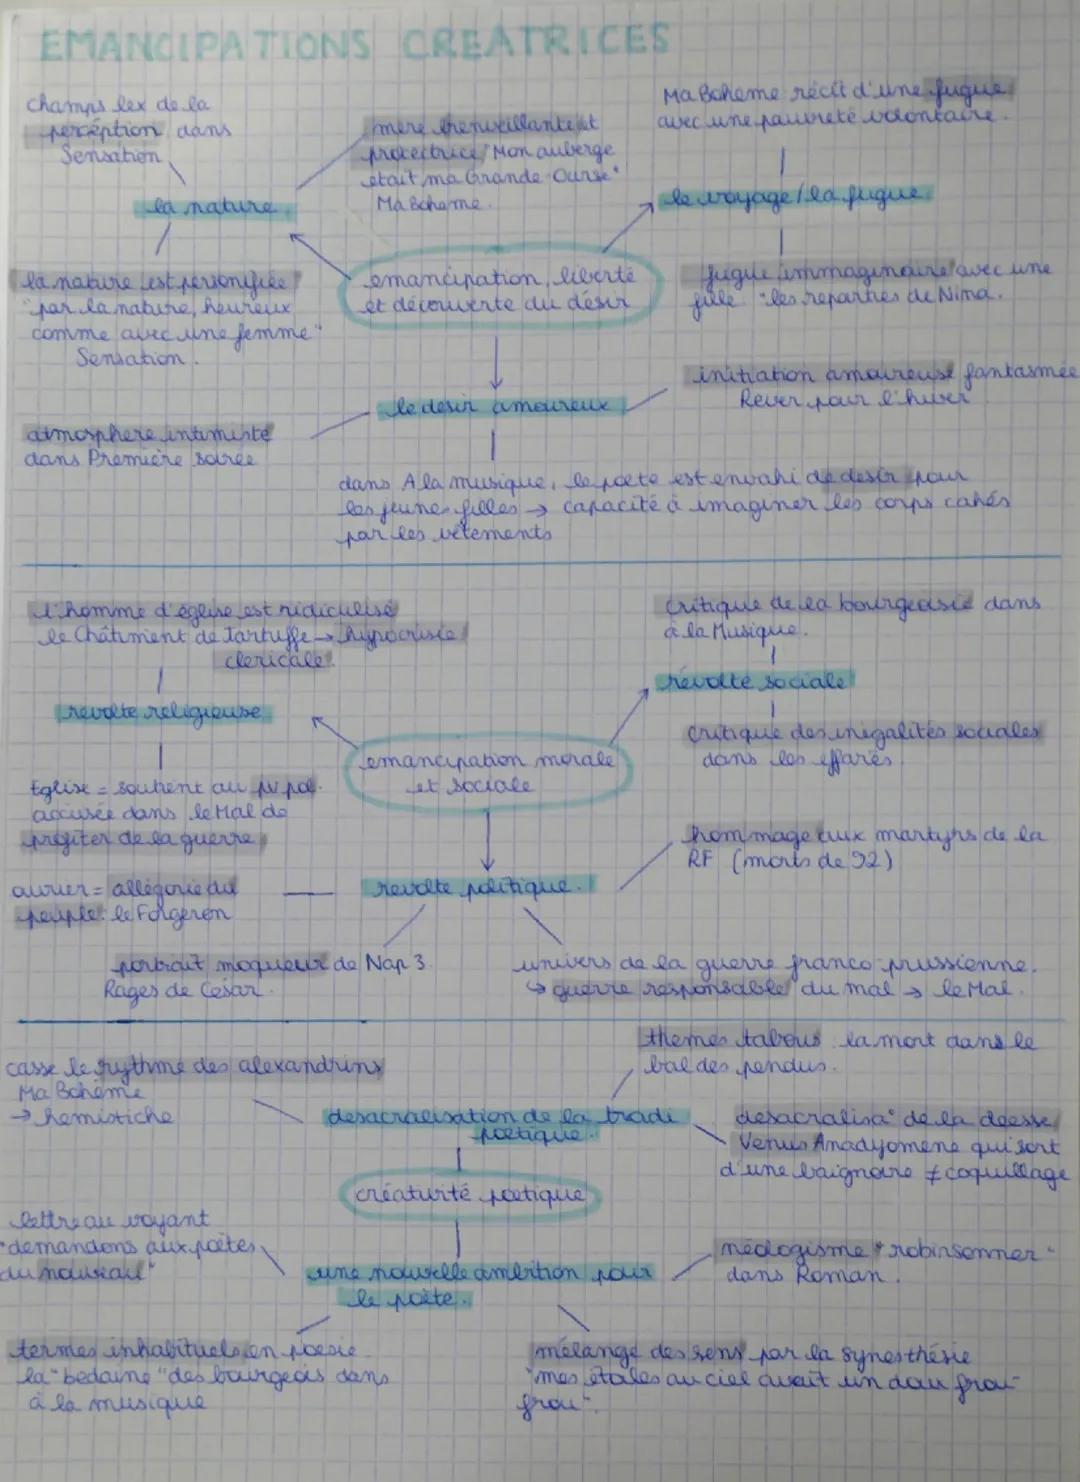 EMANCIPATIONS CREATRICES
champs lex de la
perception dans
Sensation
mère bienveillante et
protectrice "Mon auberge
était ma Grande Ourse"
Ma Boheme.
Ma Boheme récit d'une fugue
avec une pauvreté volontaire.
la nature.
le voyage / la fugue.
la nature est personifiée
"par la nature, heureux
comme avec une femme"
Sensation.
emancipation, liberté
et découverte du désir
fugue immaginaire avec une
fille "les reparties de Nina.
le desir amoureux
initiation amoureuse fantasmée
Rever pour l'hiver
atmosphere intimiste
dans Première soirée
dans A la musique, le poete est envahi de desir pour
les jeunes filles → capacité à imaginer les corps cahés
par les vêtements
l'homme d'église est ridiculisé
le Châtiment de Tartuffe → hypocrisie
clericale.
critique de la bourgeoisie dans
à la Musique.
révolte sociale
révolte religieuse
critique des inégalités sociales
dans les effarés
emancipation morale
et sociale
Eglise = soutient au pol.
accusée dans le Mal de
profiter de la guerre
hommage aux martyrs de la
RF (morts de 92)
ouvrier = allégorie du
peuple: le Forgeron
revolte politique.
portrait moqueur de Nap 3.
Rages de Cesar.
univers de la guerre franco-prussienne.
↳ guerre responsable du mal → le Mal.
themes tabous la mort dans le
bal des pendus.
casse le rythme des alexandrins
Ma Bohême
→ hemistiche
desacralisation de la tradi
poetique.
desacralisa° de la deesse
Venus Anadyomene qui sort
d'une baignoire ≠ coquillage
créativité poetique
lettre au voyant
"demandons aux poètes
du nouveau"
une nouvelle ambition pour
le poète.
néologisme "robinsonner"
dans Roman.
termes inhabituels en poesie
la "bedaine" des bourgeois dans
à la musique
mélange des sens par la synesthésie
"mes étoiles au ciel avait un doux frou-
frou".